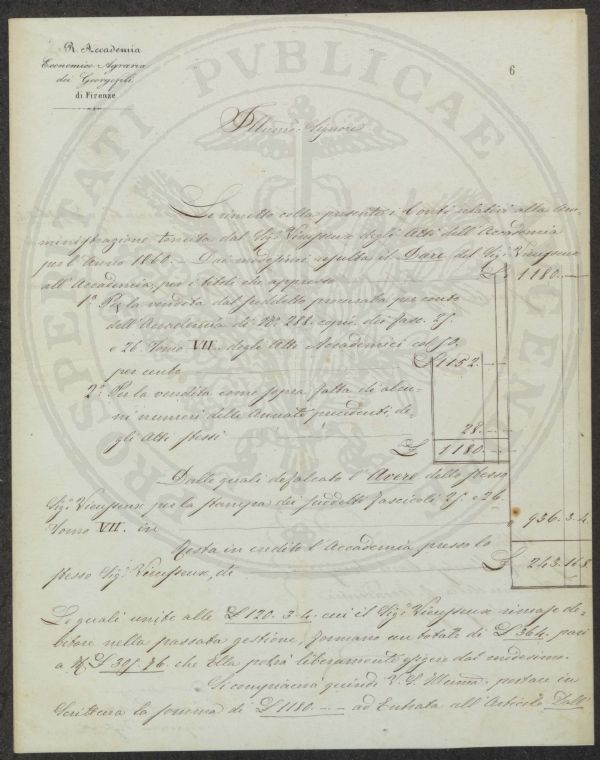 R. Accademia
Economico-Agraria
dei Georgofili
di Firenze
6
Illmo. Signore
Le rimetto colla presente i Conti relativi alla Am-
ministrazione tenuta dal Sigr. Vieusseux degli Atti dell'Accademia
per l'Anno 1860. — Dai medesimi resulta il Dare del Sigr. Vieusseux
all'Accademia, per i titoli che appresso £ 1180. —
1.° Per la vendita dal suddetto procurata per conto
dell'Accademia di N.° 288. copie dei fasc. 25.
e 26. Tomo VII. degli Atti Accademici
per cento £ 1152. —
2.° Per la vendita come sopra fatta di alcu-
ni numeri delle Annate precedenti de-
gli Atti stessi 28. —
£ 1180. —
Dalle quali defalcato l'Avere dello stesso
Sigr. Vieusseux per la stampa dei suddetti fascicoli 25. e 26
Tomo VII. in " 936. 3. 4.
Resta in credito l'Accademia presso lo
stesso Sigr. Vieusseux, di £ 243. 16. 8
Le quali unite alle £ 120. 3. 4. cui il Sigr. Vieusseux rimase de-
bitore nella passata gestione, formano un totale di £ 364. pari
a £ 305. 76. che Ella potrà liberamente esigere dal medesimo.
Si compiacerà quindi V. S. Illma. portare in
Scrittura la somma di £ 1180. — ad Entrata all'Articolo Dall'
PROSPERITATI PVBLICAE